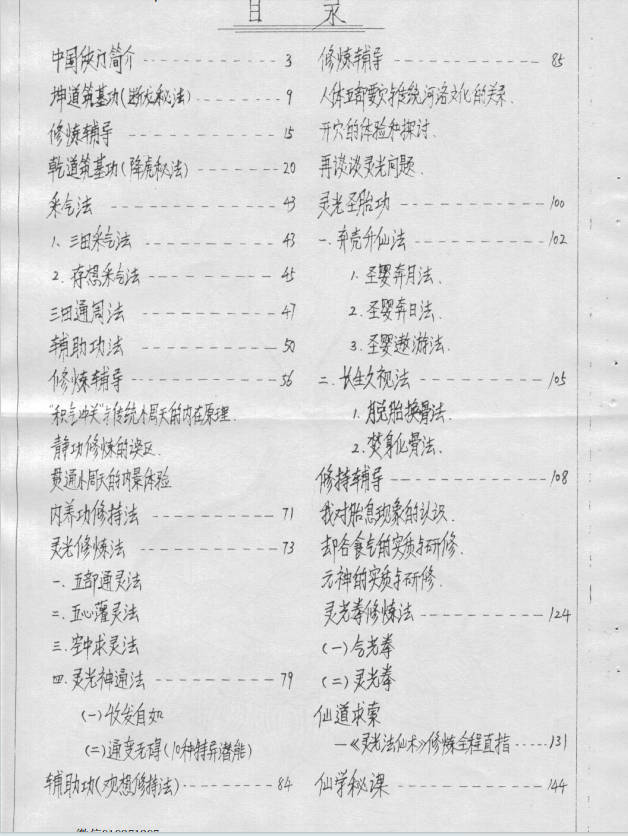 目 录
中国侠门简介 ---------- 3
坤道筑基功(斩龙秘法) ------ 9
修炼辅导 ---------- 15
乾道筑基功(降虎秘法) ------ 20
采气法 ---------- 43
1、三田采气法 ---------- 43
2.存想采气法 ---------- 45
三田通周法 ---------- 47
辅助功法 ---------- 50
修炼辅导 ---------- 56
"积气冲关"与传统小周天的内在原理.
静功修炼的误区.
贯通小周天的内景体验
内养功修持法 ---------- 71
灵光修炼法 ---------- 73
一.五部通灵法
二.五心灌灵法
三.空中求灵法
四.灵光神通法 ---------- 79
(一)收发自如
(二)通变无碍(10种特异潜能)
辅助功(观想修持法) -------- 84
修炼辅导 ---------- 85
人体五部要穴与传统河洛文化的关系.
开穴的体验和探讨.
再谈谈灵光问题.
灵光圣胎功 ---------- 100
一.弃壳升仙法 ---------- 102
1.圣婴奔月法.
2.圣婴奔日法.
3.圣婴遨游法.
二.长生久视法 ---------- 105
1.脱胎换骨法.
2.焚身化骨法.
修持辅导 ---------- 108
我对胎息现象的认识.
却谷食气的实质与研修.
元神的实质与研修.
灵光拳修炼法 ---------- 124
(一)合光拳
(二)灵光拳
仙道求索
—《灵光法仙术》修炼全程直指 ----- 131
仙学秘课 ---------- 144